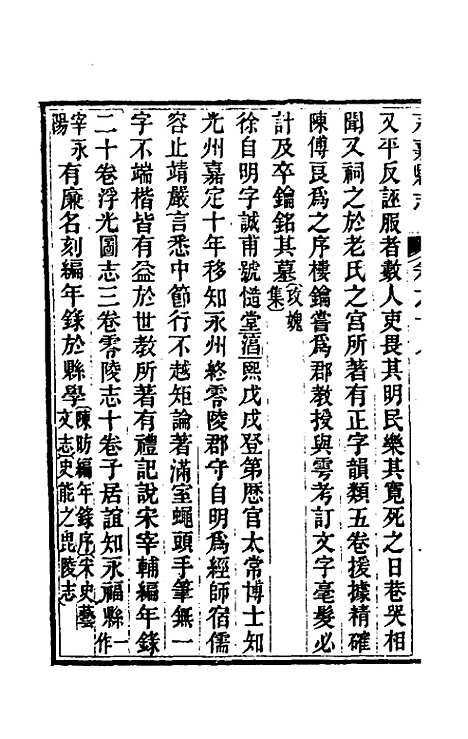 又平反誣服者數人吏畏其明民樂其寬死之日巷哭相
聞又祠之於老氏之宮所著有正字韻類五卷援據精確
陳傅良爲之序樓鑰嘗爲郡教授與雩考訂文字毫髮必
計及卒鑰銘其墓攻媿集
徐自明字誠甫號慥堂淳熙戊戌登第歷官太常博士知
光州嘉定十年移知永州終零陵郡守自明爲經師宿儒
容止靖嚴言悉中節行不越矩論著滿室蠅頭手筆無一
字不端楷皆有益於世教所著有禮記說宋宰輔編年錄
二十卷浮光圖志三卷零陵志十卷子居誼知永福縣一作
宰永陽有廉名刻編年錄於縣學陳昉編年錄序宋史藝文志史能之毘陵志